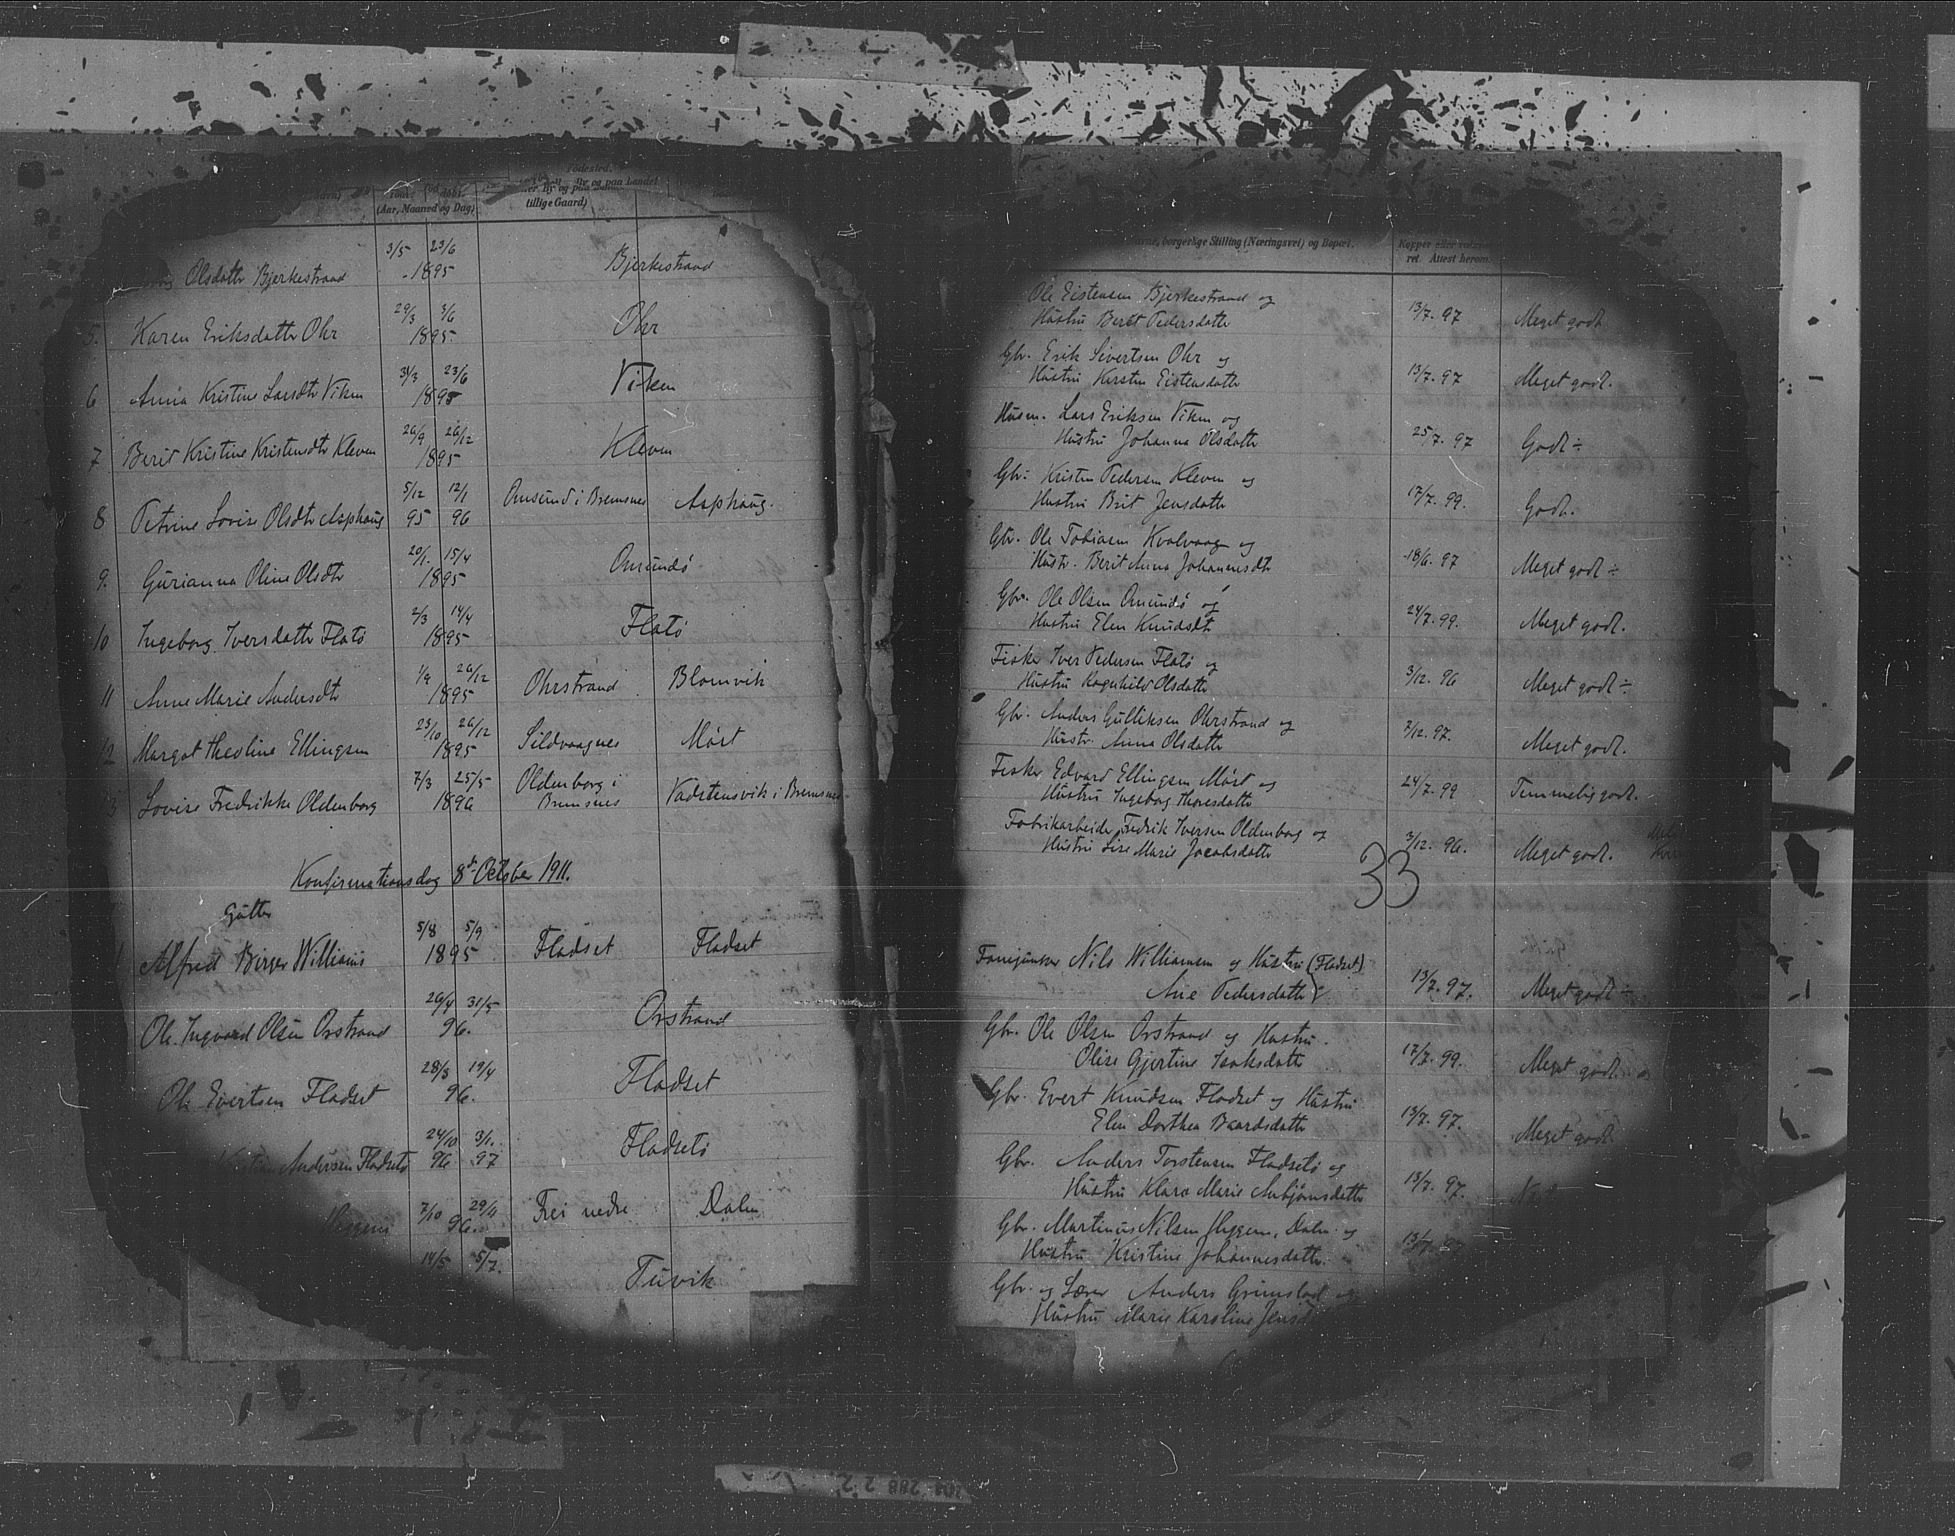 Fødested.
By og paa Landet
(Aar, Maaned og Dag)
tillige Gaard)
Olsdatter Bjerkestrand 3/5 23/6 1895 Bjerkestrand
5. Karen Eriksdatter Ohr 29/3 3/6 1895 Ohr
6 Anna Kristine Larsdtr Viken 31/3 23/6 1895 Viken
7 Berit Kristine Kristensdtr Kleven 26/9 26/12 1895 Kleven
8 Petrine Lovise Olsdtr Asphaug 5/12 95 12/1 96 Omsund i Bremsnes Asphaug.
9. Gurianna Oline Olsdtr 20/1. 15/4 1895 Omundø
10 Ingeborg Iversdatter Flatø 2/3 14/4 1895 Flatø
11 Anne Marie Andersdtr 26/12 1895 Ohrstrand Blomvik
12 Margot Theoline Ellingsen 23/10 26/12 1895 Sildvaagnes Møst
3 Lovise Fredrikke Oldenborg 7/3 25/5 1896 Oldenborg i Bremsnes Vadstensvik i Bremsnes
Konfirmationsdag 8d October 1911.
Gutter
1 Alfred Birger Williams 5/8 5/9 1895 Fladset Fladset
Ole Ingvard Olsen Orstrand 26/4 31/5 96. Orstrand
Ole Evertsen Fladset 28/3 19/4 96. Fladset
Andersen Fladsetø 24/10 96 3/1. 97 Fladsetø
Heggem 7/10 29/11 96. Frei nedre Dalen
14/5 5/7. Tuvik
borgerlige Stilling (Næringsvei) og Bopæl.
Attest herom.
Ole Eistensen Bjerkestrand og
Hustru Berit Pedersdatter 13/7. 97 Meget godt
Gbr. Erik Sivertsen Ohr og
Hustru Kirsten Eistensdatter 13/7. 97 Meget godt.
Husm. Lars Eriksen Viken og
Hustru Johanna Olsdatter 25/7. 97 Godt ÷
Gbr. Kristen Pedersen Kleven og
Hustru Brit Jensdatter 17/7. 99. Godt.
Gbr. Ole Tobiasen Kvalvaag og
Hustr. Berit Anna Johannesdtr 18/6. 97 Meget godt ÷
Gbr. Ole Olsen Omundø og
Hustru Elen Knudsdtr 24/7. 99. Meget godt.
Fisker Iver Pedersen Flatø og
Hustru Ragnhild Olsdatter 3/12. 96 Meget godt ÷
Gbr. Anders Gulliksen Ohrstrand og
Hustr. Anna Olsdatter 7/12. 97. Meget godt.
Fisker Edvard Ellingsen Møst og
Hustru Ingeborg Thoresdatter 24/7. 99 Temmelig godt.
Fabrikarbeider Fredrik Iversen Oldenborg og
Hustru Lise Marie Jacobsdatter 3/12. 96. Meget godt.
33
Nils Williamsen og Hustru (Fladset)
Ane Pedersdatter 13/7. 97. Meget godt ÷
Gbr. Ole Olsen Orstrand og Hustru
Olise Gjertine Isaksdatter 17/7. 99. Meget godt.
Gbr. Evert Knudsen Fladset og Hustru
Elen Dorthea Baardsdatter 13/7. 97. Meget godt
Gbr. Anders Torstensen Fladsetø og
Hustru Klara Marie Asbjørnsdatter 13/7. 97.
Gbr. Martinus Nilsen Heggem, Dalen og
Hustru Kristine Johannesdatter. 13/7. 97
Gbr. og Lærer Anders Grimstad og
Hustru Marie Karoline